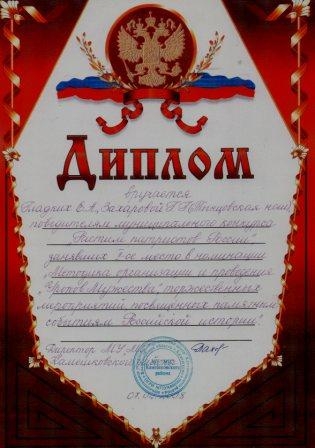 ДИПЛОМ
вручается
Гладких Е.А., Захаровой
победителям муниципального конкурса
"Растим патриотов России",
занявших I-ое место в номинации
"Методика организации и проведения
"Уроков Мужества", торжественных
мероприятий, посвящённых памятным
событиям Российской истории".
Директор МУ
Камешковского